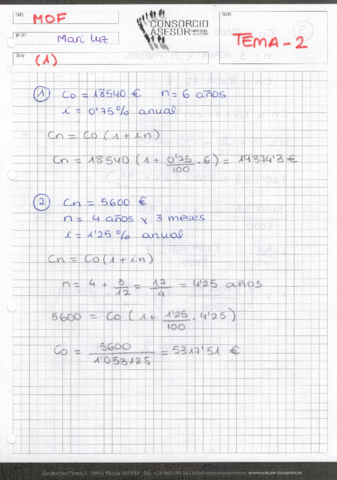 MOF
CONSORCIO
ASESOR
Mari Luz
TEMA-2
(1)
① Co = 18540 € n = 6 años
i = 0'75% anual
Cn = Co (1 + in)
Cn = 18540 (1 + 0'75/100 . 6) = 19374'3 €
② Cn = 5600 €
n = 4 años y 3 meses
i = 1'25 % anual
Cn = Co (1 + in)
n = 4 + 3/12 = 17/4 = 4'25 años
5600 = Co (1 + 1'25/100 . 4'25)
Co = 5600/1'053125 = 5317'51 €